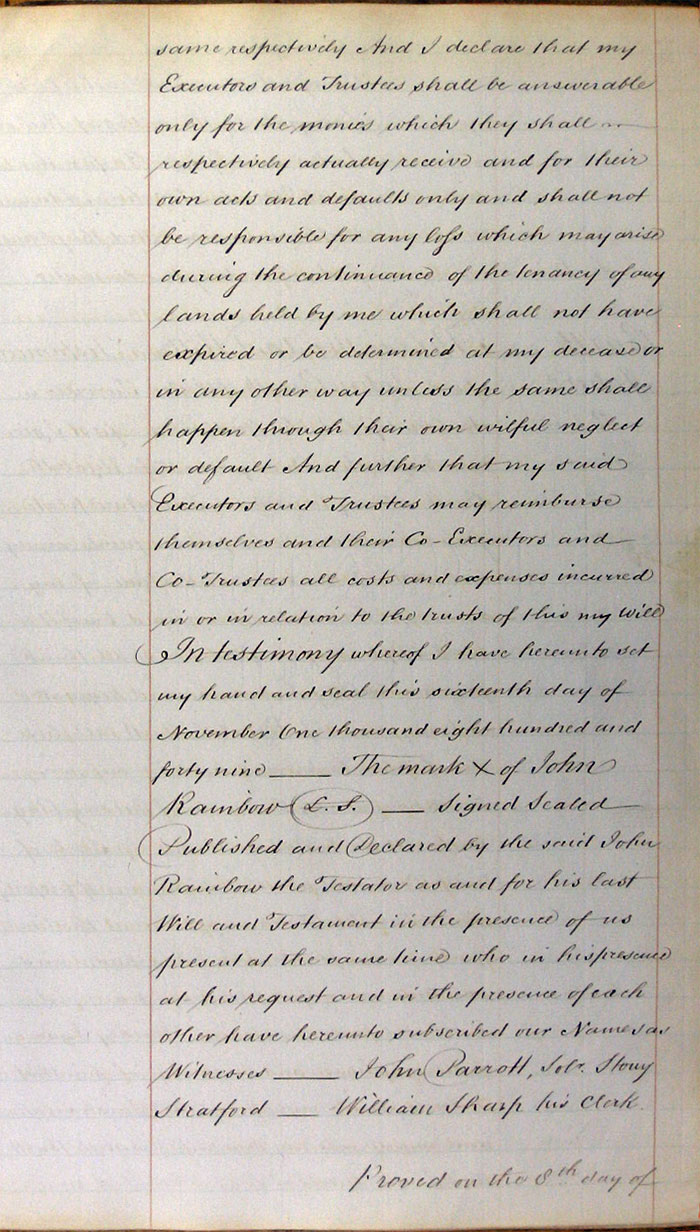 same respectively And I declare that my
Executors and Trustees shall be answerable
only for the monies which they shall
respectively actually receive and for their
own acts and defaults only and shall not
be responsible for any loss which may arise
during the continuance of the tenancy of any
lands held by me which shall not have
expired or be determined at my decease or
in any other way unless the same shall
happen through their own wilful neglect
or default And further that my said
Executors and Trustees may reimburse
themselves and their Co-Executors and
Co-Trustees all costs and expenses incurred
in or in relation to the trusts of this my Will
In testimony whereof I have hereunto set
my hand and seal this sixteenth day of
November One thousand eight hundred and
forty nine —— The mark X of John
Rainbow L.S. —— Signed Sealed
Published and Declared by the said John
Rainbow the Testator as and for his last
Will and Testament in the presence of us
present at the same time who in his presence
at his request and in the presence of each
other have hereunto subscribed our Names as
Witnesses —— John Parrott, Solr. Stony
Stratford —— William Sharp his Clerk.
Proved on the 8th day of